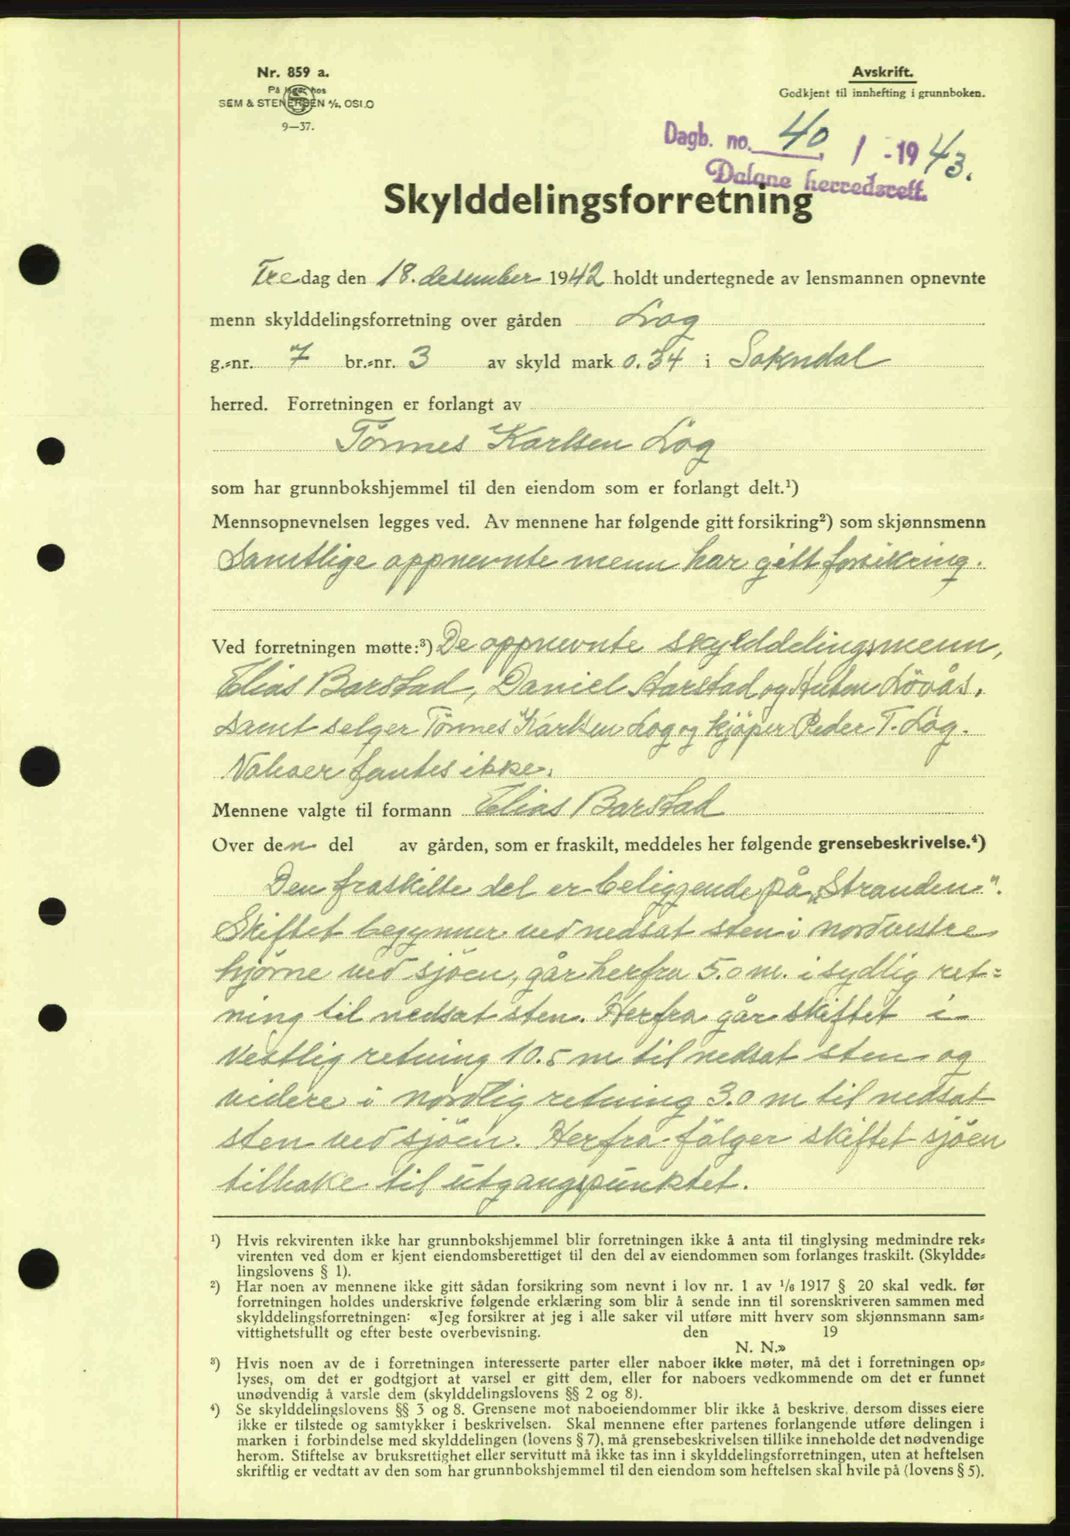 Nr. 859 a.
På lager hos
SEM & STENERSEN A/S, OSLO
9—37.
Avskrift.
Godkjent til innhefting i grunnboken.
Dagb. no. 40 / - 1943.
Dalane herredsrett.
Skylddelingsforretning
Fredag den 18. desember 1942 holdt undertegnede av lensmannen opnevnte
menn skylddelingsforretning over gården Log
g.-nr. 7 br.-nr. 3 av skyld mark 0.34 i Sokndal
herred. Forretningen er forlangt av
Tönnes Karlsen Log
som har grunnbokshjemmel til den eiendom som er forlangt delt.¹)
Mennsopnevnelsen legges ved. Av mennene har følgende gitt forsikring²) som skjønnsmenn
Samtlige oppnevnte menn har gitt forsikring.
Ved forretningen møtte:³) De oppnevnte skylddelingsmenn,
Elias Barstad, Daniel Barstad og Anton Lövås.
samt selger Tönnes Karlsen Log og kjöper Peder T. Log.
Naboer fantes ikke.
Mennene valgte til formann Elias Barstad
Over den del av gården, som er fraskilt, meddeles her følgende grensebeskrivelse.⁴)
Den fraskilte del er beliggende på „Stranden".
Skiftet begynner ved nedsat sten i nordvestre
hjörne ved sjöen, går herfra 5.0 m. i sydlig ret-
ning til nedsat sten. Herfra går skiftet i
vestlig retning 10.5 m til nedsat sten og
videre i nordlig retning 3.0 m til nedsat
sten ved sjöen. Herfra fölger skiftet sjöen
tilbake til utgangspunktet.
¹) Hvis rekvirenten ikke har grunnbokshjemmel blir forretningen ikke å anta til tinglysing medmindre rek-
virenten ved dom er kjent eiendomsberettiget til den del av eiendommen som forlanges fraskilt. (Skyldde-
lingslovens § 1).
²) Har noen av mennene ikke gitt sådan forsikring som nevnt i lov nr. 1 av 1/6 1917 § 20 skal vedk. før
forretningen holdes underskrive følgende erklæring som blir å sende inn til sorenskriveren sammen med
skylddelingsforretningen: «Jeg forsikrer at jeg i alle saker vil utføre mitt hverv som skjønnsmann sam-
vittighetsfullt og efter beste overbevisning. den 19
N. N.»
³) Hvis noen av de i forretningen interesserte parter eller naboer ikke møter, må det i forretningen op-
lyses, om det er godtgjort at varsel er gitt dem, eller for naboers vedkommende om det er funnet
unødvendig å varsle dem (skylddelingslovens §§ 2 og 8).
⁴) Se skylddelingslovens §§ 3 og 8. Grensene mot naboeiendommer blir ikke å beskrive, dersom disses eiere
ikke er tilstede og samtykker i beskrivelsen. Skal mennene efter partenes forlangende utføre delingen i
marken i forbindelse med skylddelingen (lovens § 7), må grensebeskrivelsen tillike inneholde det nødvendige
herom. Stiftelse av bruksrettighet eller servitutt må ikke tas inn i skylddelingsforretningen, uten at heftelsen
skriftlig er vedtatt av den som har grunnbokshjemmel til den eiendom som heftelsen skal hvile på (lovens § 5).